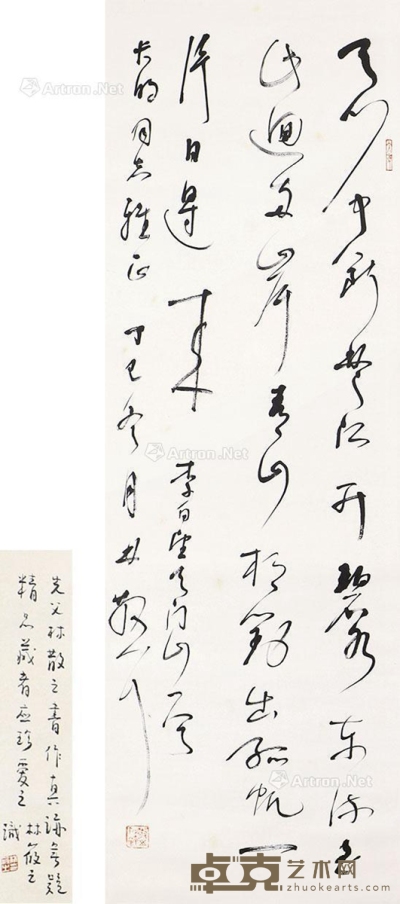 天门中断楚江开碧水东流至
此迴两岸青山相对出孤帆一
片日边来 李白望天门山一首
大明同志雅正 丁巳冬月 林散之
先父林散之书作真迹无疑
精品藏者应珍爱之
林筱之
识
Artron.Net
Artron.Net
Artron.Net
Artron.Net
卓克艺术网
zhuokearts.com